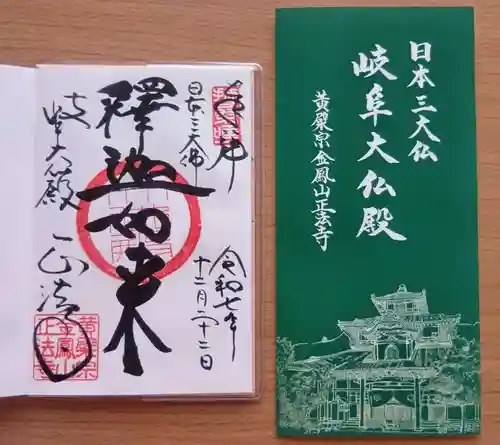 奉拝
日本三大佛
釋迦如来
岐阜大殿
正法寺
令和七年
十二月二十二日
黄檗宗
金鳳山
正法寺
日本三大仏
岐阜大仏殿
黄檗宗金鳳山正法寺